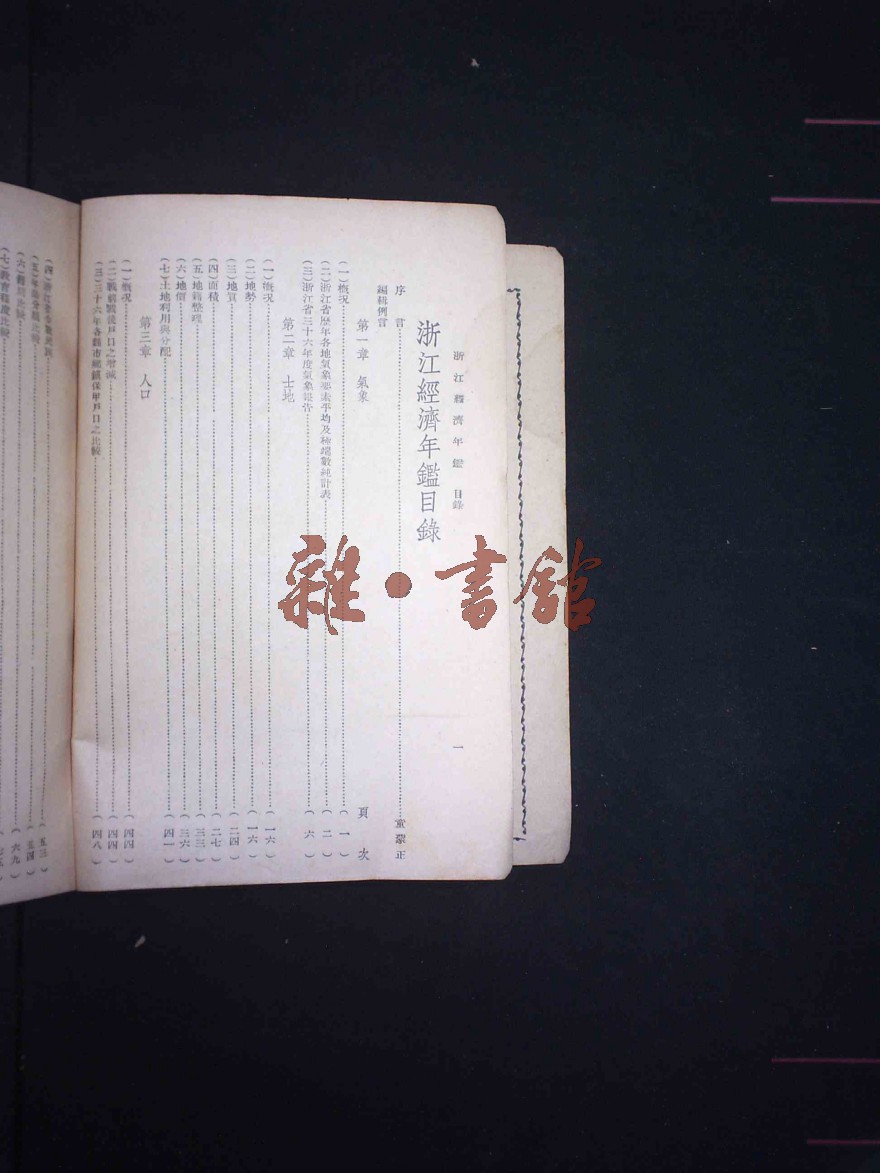 浙江經濟年鑑 目錄 一
浙江經濟年鑑目錄
序言……童蒙正
編輯例言
頁次
第一章 氣象
(一)概況……(一)
(二)浙江省歷年各地氣象要素平均及極端數統計表……(二)
(三)浙江省三十六年度氣象報告……(六)
第二章 土地
(一)概況……(一六)
(二)地勢……(一六)
(三)地質……(二四)
(四)面積……(二七)
(五)地籍整理……(三三)
(六)地價……(三六)
(七)土地利用與分配……(四一)
第三章 人口
(一)概況……(四四)
(二)戰前戰後戶口之增減……(四四)
(三)三十六年各縣市鄉鎮保甲戶口之比較……(四八)
(四)浙江省……五三)
(五)年齡分組比較……五四)
(六)……比較……六九)
(七)教育程度比較
雜·書館